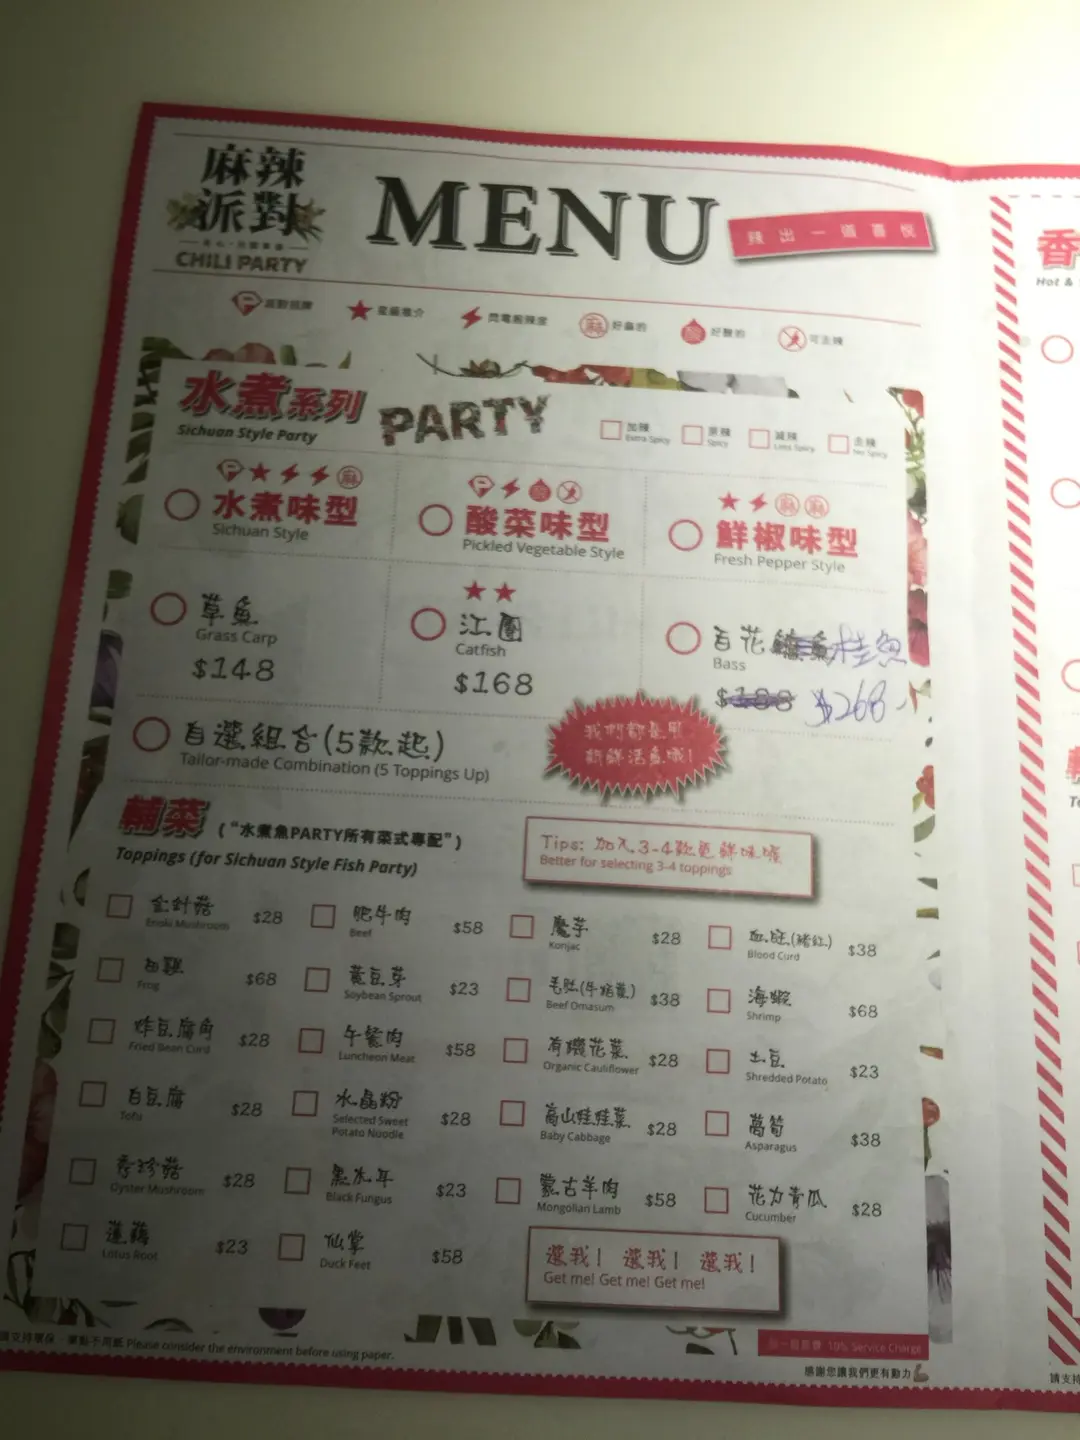 麻辣
派對
CHILI PARTY
MENU
辣出一道喜悅
派對招牌
星級推介
閃電般辣度
麻 好麻的
酸 好酸的
可走辣
水煮系列
Sichuan Style Party
PARTY
加辣
Extra Spicy
原辣
Spicy
減辣
Less Spicy
走辣
No Spicy
麻
水煮味型
Sichuan Style
酸
酸菜味型
Pickled Vegetable Style
麻 麻
鮮椒味型
Fresh Pepper Style
草魚
Grass Carp
$148
江團
Catfish
$168
百花 桂魚
Bass
$188 $268
自選組合(5款起)
Tailor-made Combination (5 Toppings Up)
我們都是用
新鮮活魚哦!
輔菜 ("水煮魚PARTY所有菜式專配")
Toppings (for Sichuan Style Fish Party)
Tips: 加入3-4款更鮮味喔
Better for selecting 3-4 toppings
金針菇 $28
Enoki Mushroom
肥牛肉 $58
Beef
魔芋 $28
Konjac
血旺(豬紅) $38
Blood Curd
田雞 $68
Frog
黃豆芽 $23
Soybean Sprout
毛肚(牛栢葉) $38
Beef Omasum
海蝦 $68
Shrimp
炸豆腐角 $28
Fried Bean Curd
午餐肉 $58
Luncheon Meat
有機花菜 $28
Organic Cauliflower
土豆 $23
Shredded Potato
白豆腐 $28
Tofu
水晶粉 $28
Selected Sweet
Potato Noodle
高山娃娃菜 $28
Baby Cabbage
萵筍 $38
Asparagus
秀珍菇 $28
Oyster Mushroom
黑木耳 $23
Black Fungus
蒙古羊肉 $58
Mongolian Lamb
花力青瓜 $28
Cucumber
蓮藕 $23
Lotus Root
仙掌 $58
Duck Feet
選我! 選我! 選我!
Get me! Get me! Get me!
請支持環保，單點不用紙 Please consider the environment before using paper.
加一服務費 10% Service Charge
感謝您讓我們更有動力
香
Hot &
請支持